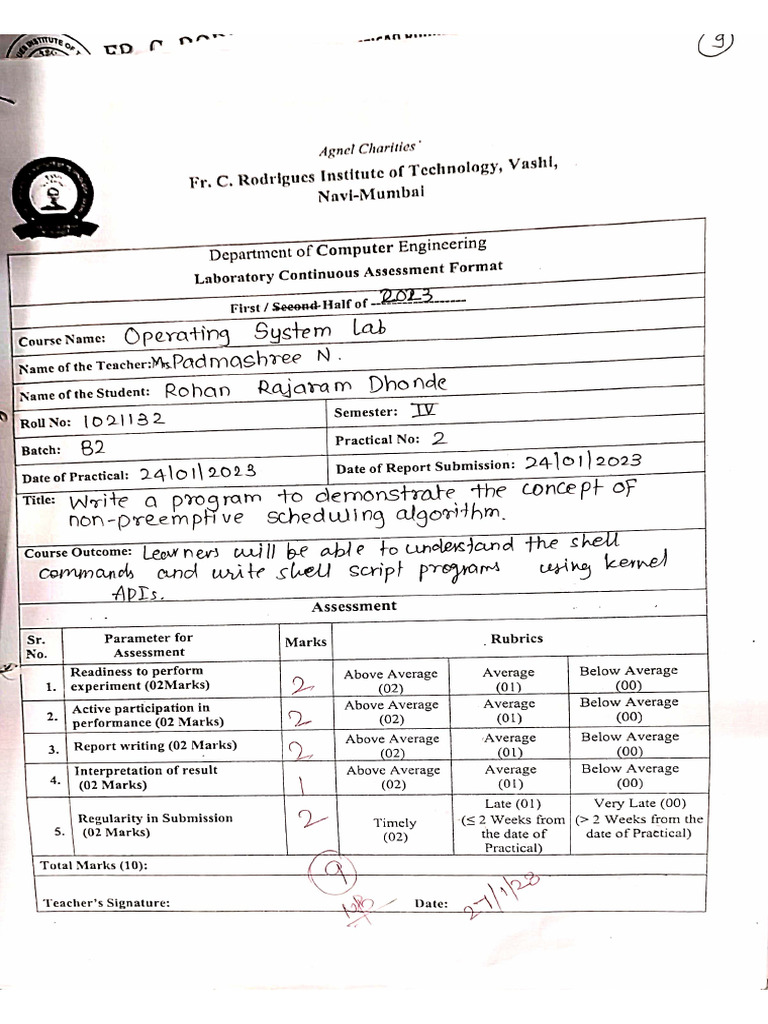 9
Agnel Charities'
Fr. C. Rodrigues Institute of Technology, Vashi,
Navi-Mumbai
Department of Computer Engineering
Laboratory Continuous Assessment Format
First / Second Half of 2023
Course Name: Operating System Lab
Name of the Teacher: Mrs. Padmashree N.
Name of the Student: Rohan Rajaram Dhonde
Roll No: 1021132 Semester: IV
Batch: B2 Practical No: 2
Date of Practical: 24/01/2023 Date of Report Submission: 24/01/2023
Title: Write a program to demonstrate the concept of
non-preemptive scheduling algorithm.
Course Outcome: Learners will be able to understand the shell
commands and write shell script programs using kernel
APIs.
Assessment
Sr. No. Parameter for Assessment Marks Rubrics
1. Readiness to perform experiment (02Marks) 2 Above Average (02) Average (01) Below Average (00)
2. Active participation in performance (02 Marks) 2 Above Average (02) Average (01) Below Average (00)
3. Report writing (02 Marks) 2 Above Average (02) Average (01) Below Average (00)
4. Interpretation of result (02 Marks) 1 Above Average (02) Average (01) Below Average (00)
5. Regularity in Submission (02 Marks) 2 Timely (02) Late (01) (≤ 2 Weeks from the date of Practical) Very Late (00) (> 2 Weeks from the date of Practical)
Total Marks (10): 9
Teacher's Signature: Date: 27/1/23